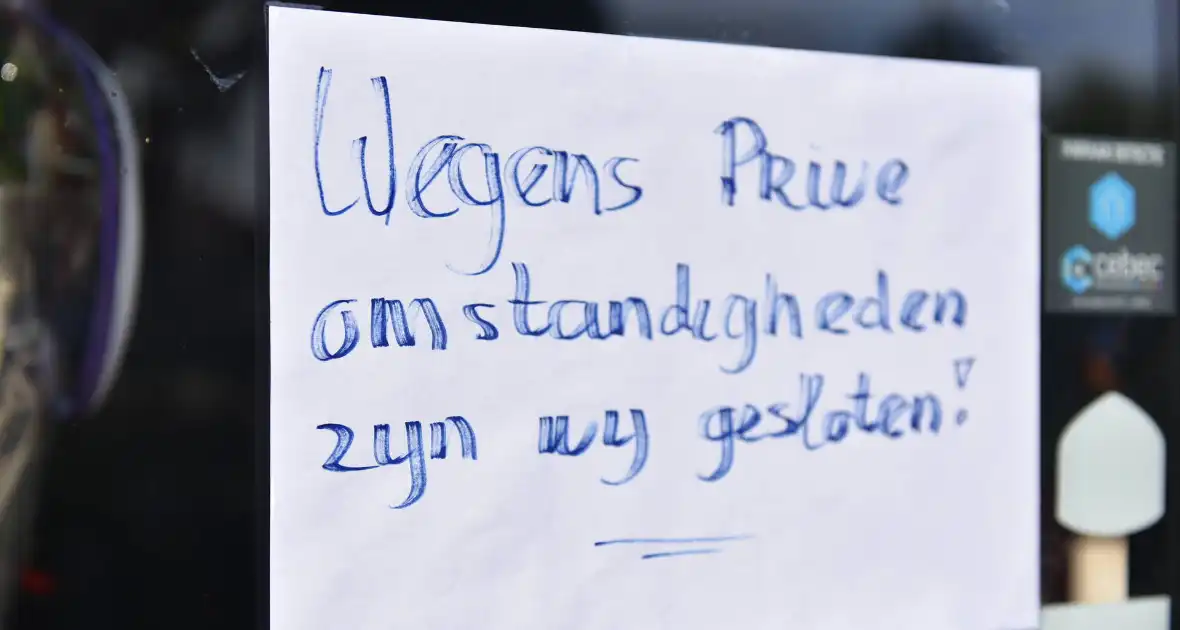 Wegens Prive
omstandigheden
zyn wy gesloten!
cebec